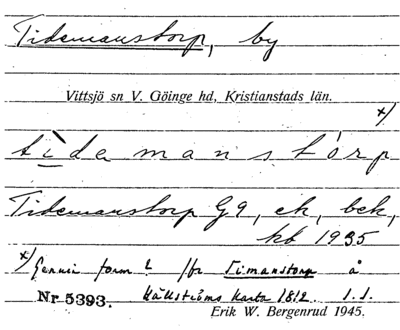 Tidemanstorp, by
Vittsjö sn V. Göinge hd, Kristianstads län.
x/
tìdamanstórp
Tidemanstorp G9, ek, bek,
kb 1935
x/ Genuin form? /fr Timanstorp å
Nr 5393. Hällströms karta 1812. 1.1.
Erik W. Bergenrud 1945.